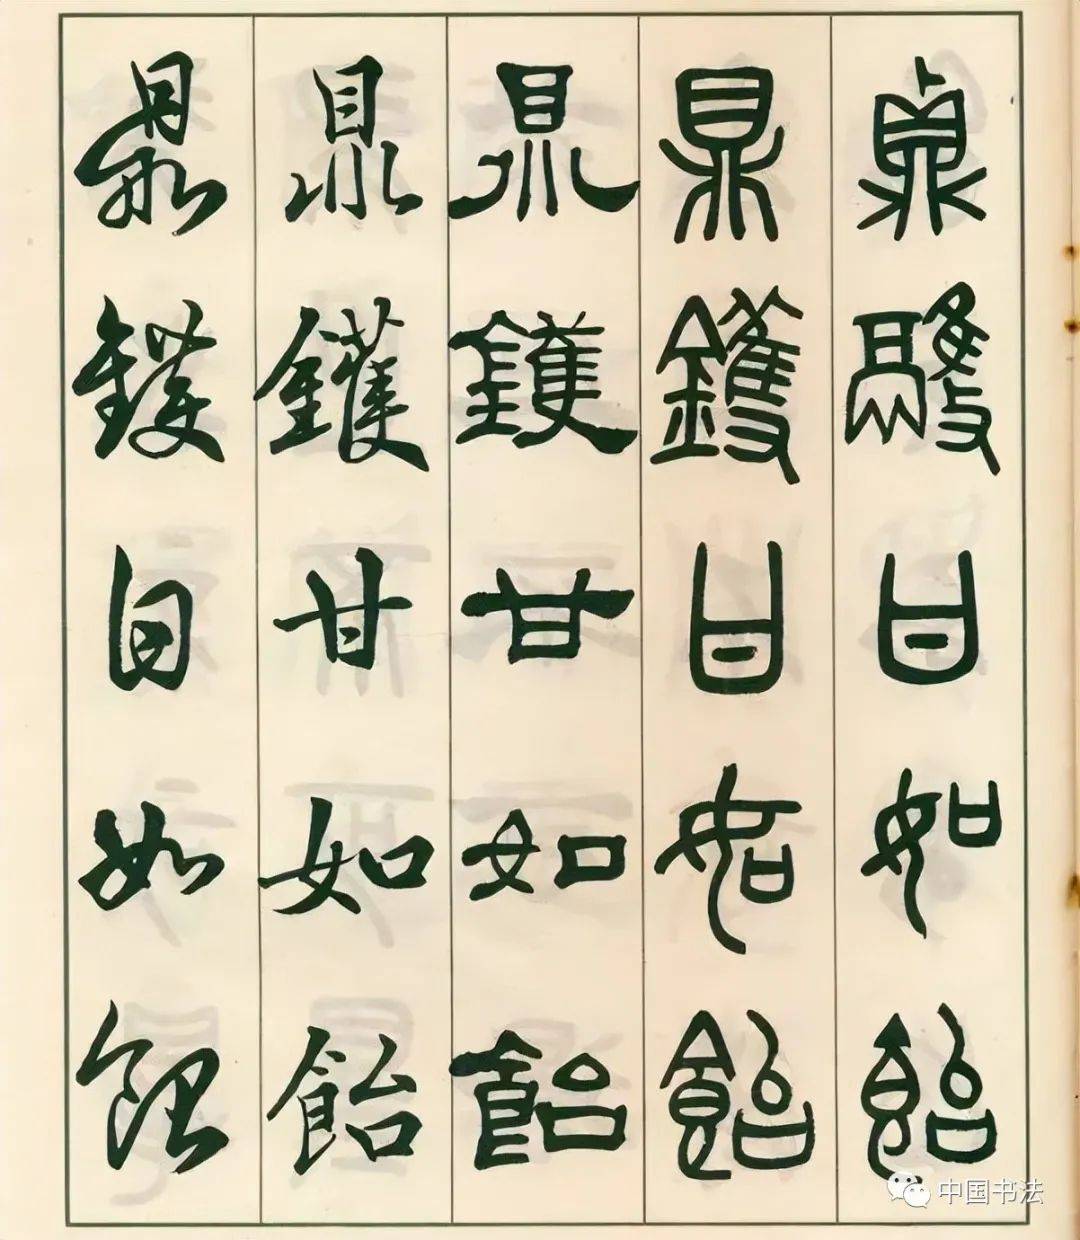 鼎鑊甘如飴
鼎鑊甘如飴
鼎鑊甘如飴
鼎鑊甘如飴
鼎鑊甘如飴
中国书法